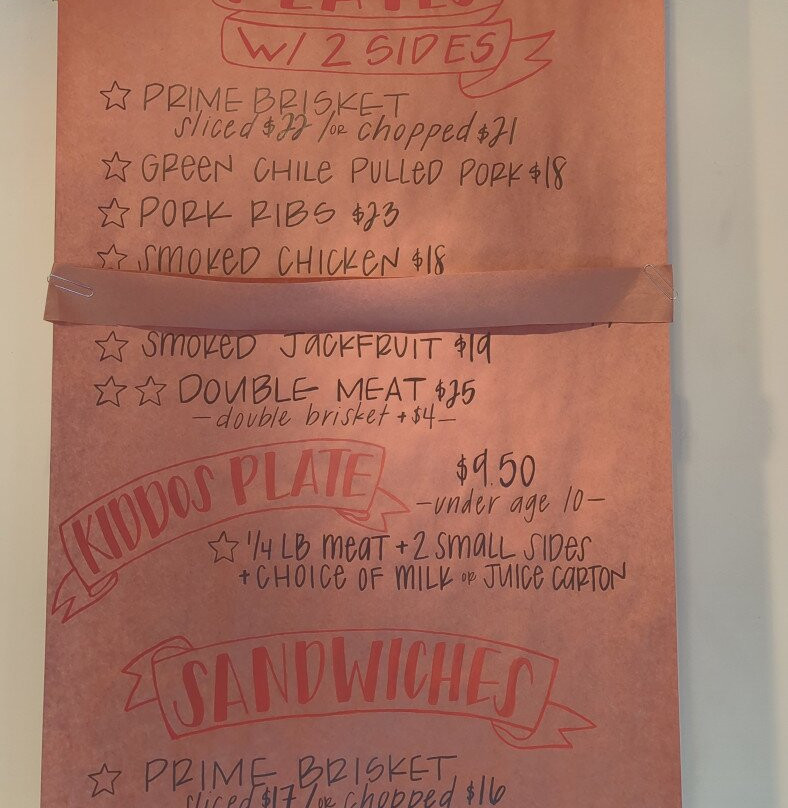 PLATES
W/ 2 SIDES
PRIME BRISKET
sliced $22 / or chopped $21
GREEN CHILE PULLED PORK $18
PORK RIBS $23
SMOKED CHICKEN $18
SMOKED JACKFRUIT $19
DOUBLE MEAT $25
- double brisket + $4 -
KIDDOS PLATE
$9.50
- under age 10 -
1/4 LB MEAT + 2 SMALL SIDES
+ CHOICE OF MILK or JUICE CARTON
SANDWICHES
PRIME BRISKET
sliced $17 / or chopped $16